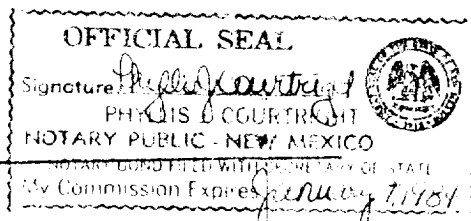 OFFICIAL SEAL
Signature Phyllis D Courtright
PHYLLIS D COURTRIGHT
NOTARY PUBLIC - NEW MEXICO
NOTARY BOND FILED WITH SECRETARY OF STATE
My Commission Expires January 7, 1984